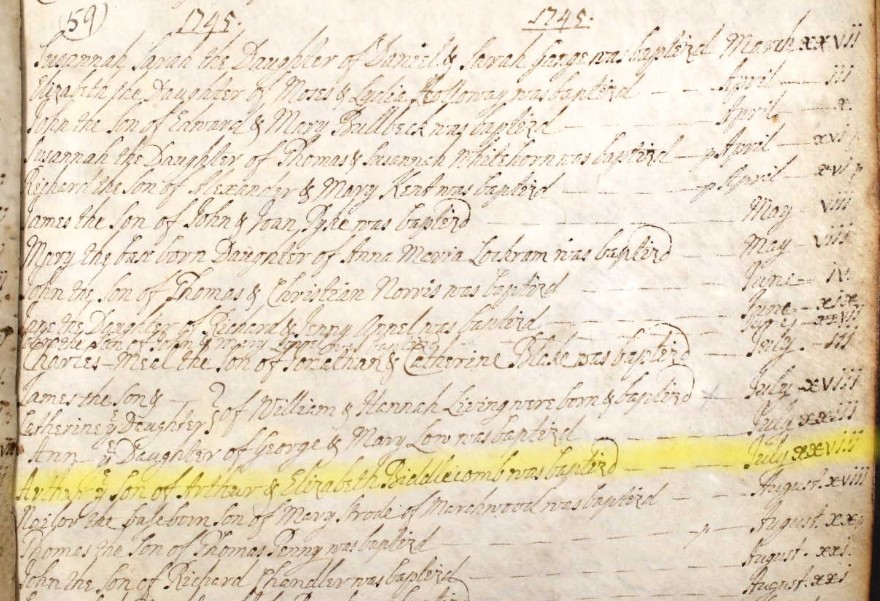 59 1745. 1745.
Susannah Sarah the Daughter of Daniel & Sarah George was baptizd March xxvii
Elizabeth the Daughter of Moses & Lydia Holloway was baptizd April iii
John the Son of Edward & Mary Bullbeck was baptizd April x
Susannah the Daughter of Thomas & Susannah Whitehorn was baptizd April xvi
Richard the Son of Alexander & Mary Kent was baptizd April xvi
James the Son of John & Joan Dyke was baptizd May viii
Mary the base born Daughter of Anna Maria Lockram was baptizd May viii
John the Son of Thomas & Christian Norris was baptizd June
Jane the Daughter of Richard & Jenny Appel was baptizd June xix
the Son of John & Mary was baptizd
Charles the Son of Jonathan & Catherine Blake was baptizd July iii
James the Son &
Catherine ye Daughter of William & Hannah Living were born & baptizd July xviii
Ann ye Daughter of George & Mary Low was baptizd July
Arthur ye Son of Arthur & Elizabeth Biddlecomb was baptizd July xxviii
the base born Son of Mary of Marchwood was baptizd August xviii
Thomas the Son of Thomas Penny was baptizd August
John the Son of Richard Chandler was baptizd August xxi
August xxi